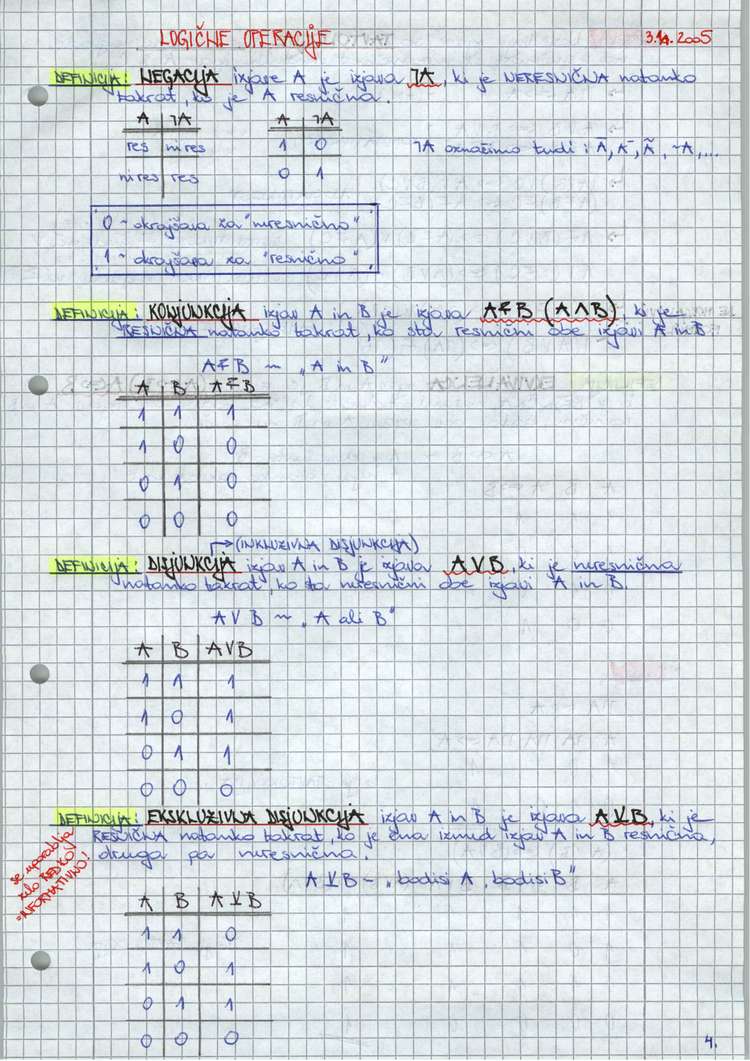 LOGIČNE OPERACIJE
3.11.2005
DEFINICIJA: NEGACIJA izjave A je izjava ¬A, ki je NERESNIČNA natanko
takrat, ko je A resnična.
A ¬A A ¬A
res ni res 1 0 ¬A označimo tudi: A̅, A⁻, Ã, ~A,...
ni res res 0 1
0 ~ okrajšava za "neresnično"
1 ~ okrajšava za "resnično"
DEFINICIJA: KONJUNKCIJA izjav A in B je izjava A & B (A ∧ B), ki je
RESNIČNA natanko takrat, ko sta resnični obe izjavi A in B.
A & B ~ "A in B"
A B A & B
1 1 1
1 0 0
0 1 0
0 0 0
→(INKLUZIVNA DISJUNKCIJA)
DEFINICIJA: DISJUNKCIJA izjav A in B je izjava A V B, ki je neresnična
natanko takrat, ko sta neresnični obe izjavi A in B.
A V B ~ "A ali B"
A B A V B
1 1 1
1 0 1
0 1 1
0 0 0
DEFINICIJA: EKSKLUZIVNA DISJUNKCIJA izjav A in B je izjava A ⊻ B, ki je
RESNIČNA natanko takrat, ko je ena izmed izjav A in B resnična,
druga pa neresnična.
se uporablja
zelo REDKO!
=INFORMATIVNO!
A ⊻ B ~ "bodisi A, bodisi B"
A B A ⊻ B
1 1 0
1 0 1
0 1 1
0 0 0
4.